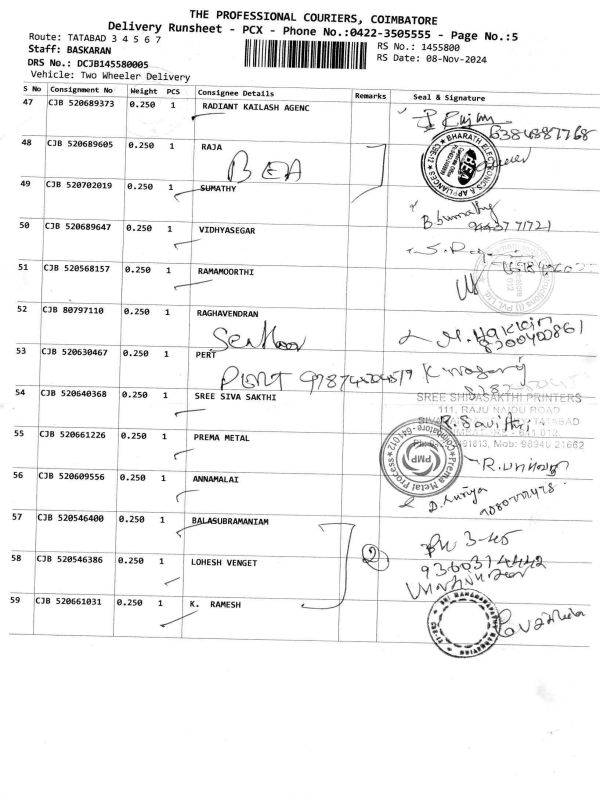 THE PROFESSIONAL COURIERS, COIMBATORE
Delivery Runsheet - PCX - Phone No.:0422-3505555 - Page No.:5
Route: TATABAD 3 4 5 6 7
RS No.: 1455800
Staff: BASKARAN
RS Date: 08-Nov-2024
DRS No.: DCJB145580005
Vehicle: Two Wheeler Delivery
S No Consignment No Weight PCS Consignee Details Remarks Seal & Signature
47 CJB 520689373 0.250 1 RADIANT KAILASH AGENC
6384887768
48 CJB 520689605 0.250 1 RAJA
BEA
BHARATH ELECTRONICS & APPLIANCES
BEA
49 CJB 520702019 0.250 1 SUMATHY
B. Sumathy
50 CJB 520689647 0.250 1 VIDHYASEGAR
51 CJB 520568157 0.250 1 RAMAMOORTHI
52 CJB 80797110 0.250 1 RAGHAVENDRAN
8300400861
53 CJB 520630467 0.250 1 PERT
PERT
54 CJB 520640368 0.250 1 SREE SIVA SAKTHI
SREE SHIVASAKTHI PRINTERS
111, RAJU NAIDU ROAD
TATABAD
R. Savithri
Mob: 98940 21662
55 CJB 520661226 0.250 1 PREMA METAL
Prema Metal Process
Coimbatore - 641 012
PMP
56 CJB 520609556 0.250 1 ANNAMALAI
57 CJB 520546400 0.250 1 BALASUBRAMANIAM
2
58 CJB 520546386 0.250 1 LOHESH VENGET
9360374442
59 CJB 520661031 0.250 1 K. RAMESH